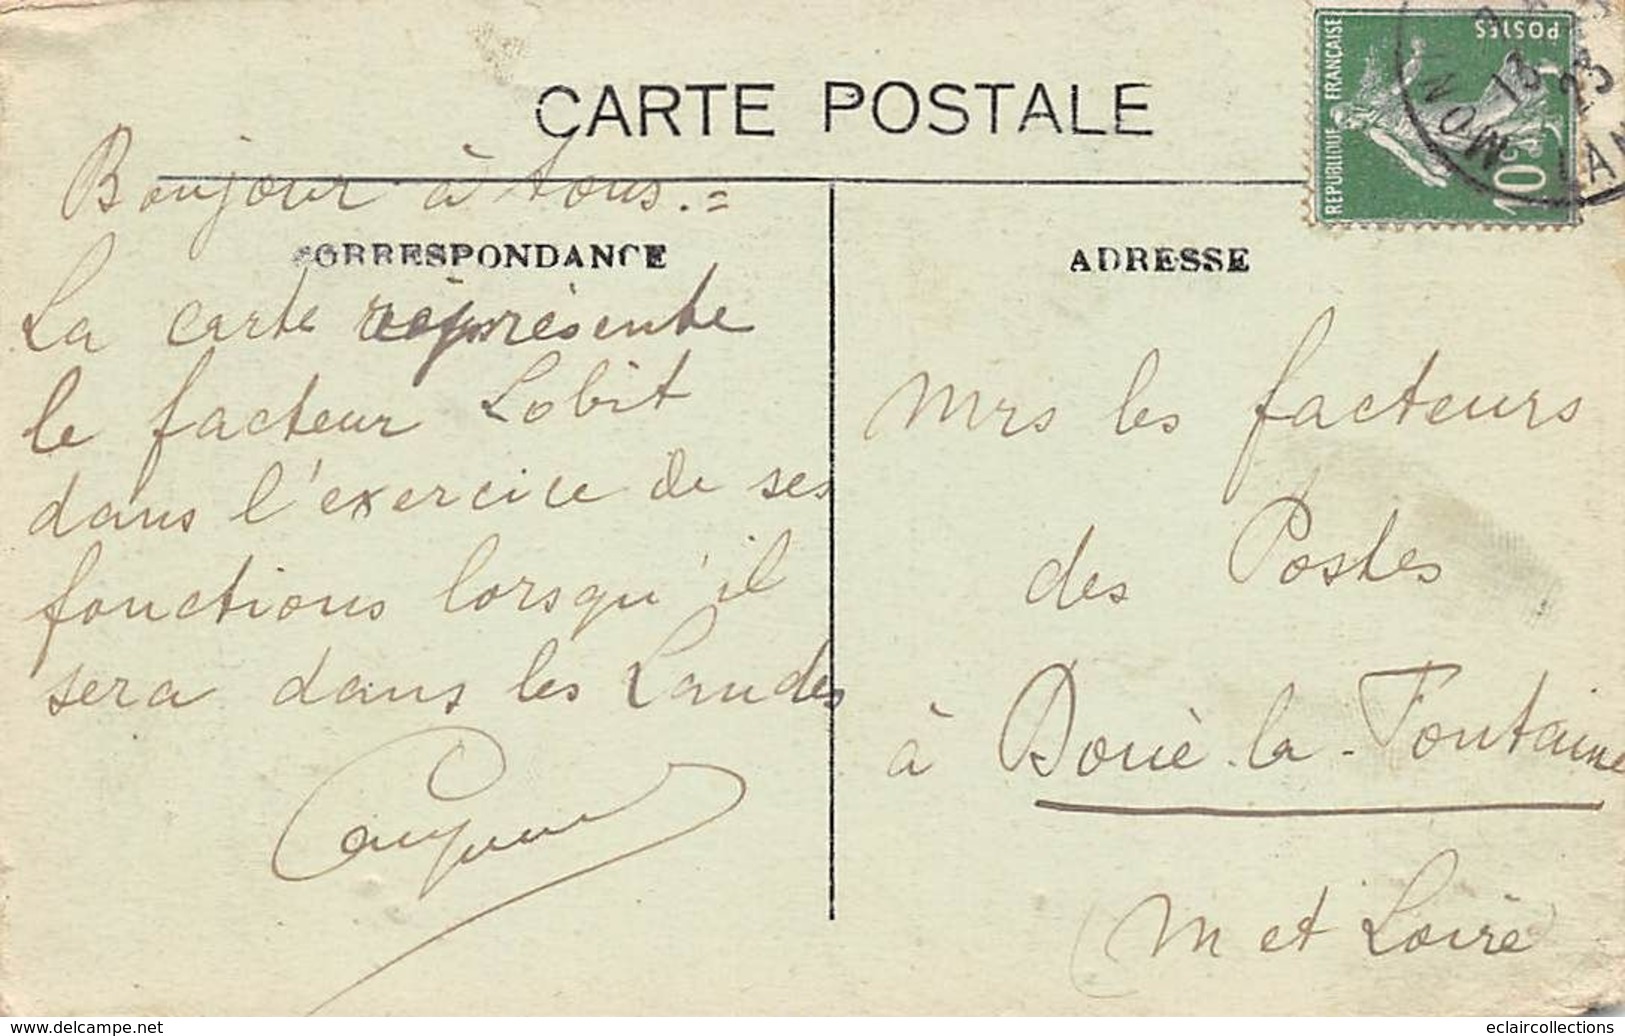 CARTE POSTALE
REPUBLIQUE FRANÇAISE
POSTES
10c
13
23
MONT
LAN
Bonjour à tous.=
CORRESPONDANCE
La carte représente
le facteur Lobit
dans l'exercice de ses
fonctions lorsqu'il
sera dans les Landes
ADRESSE
Mrs les facteurs
des Postes
à Doué-la-Fontaine
(M et Loire)
www.delcampe.net
eclaircollections